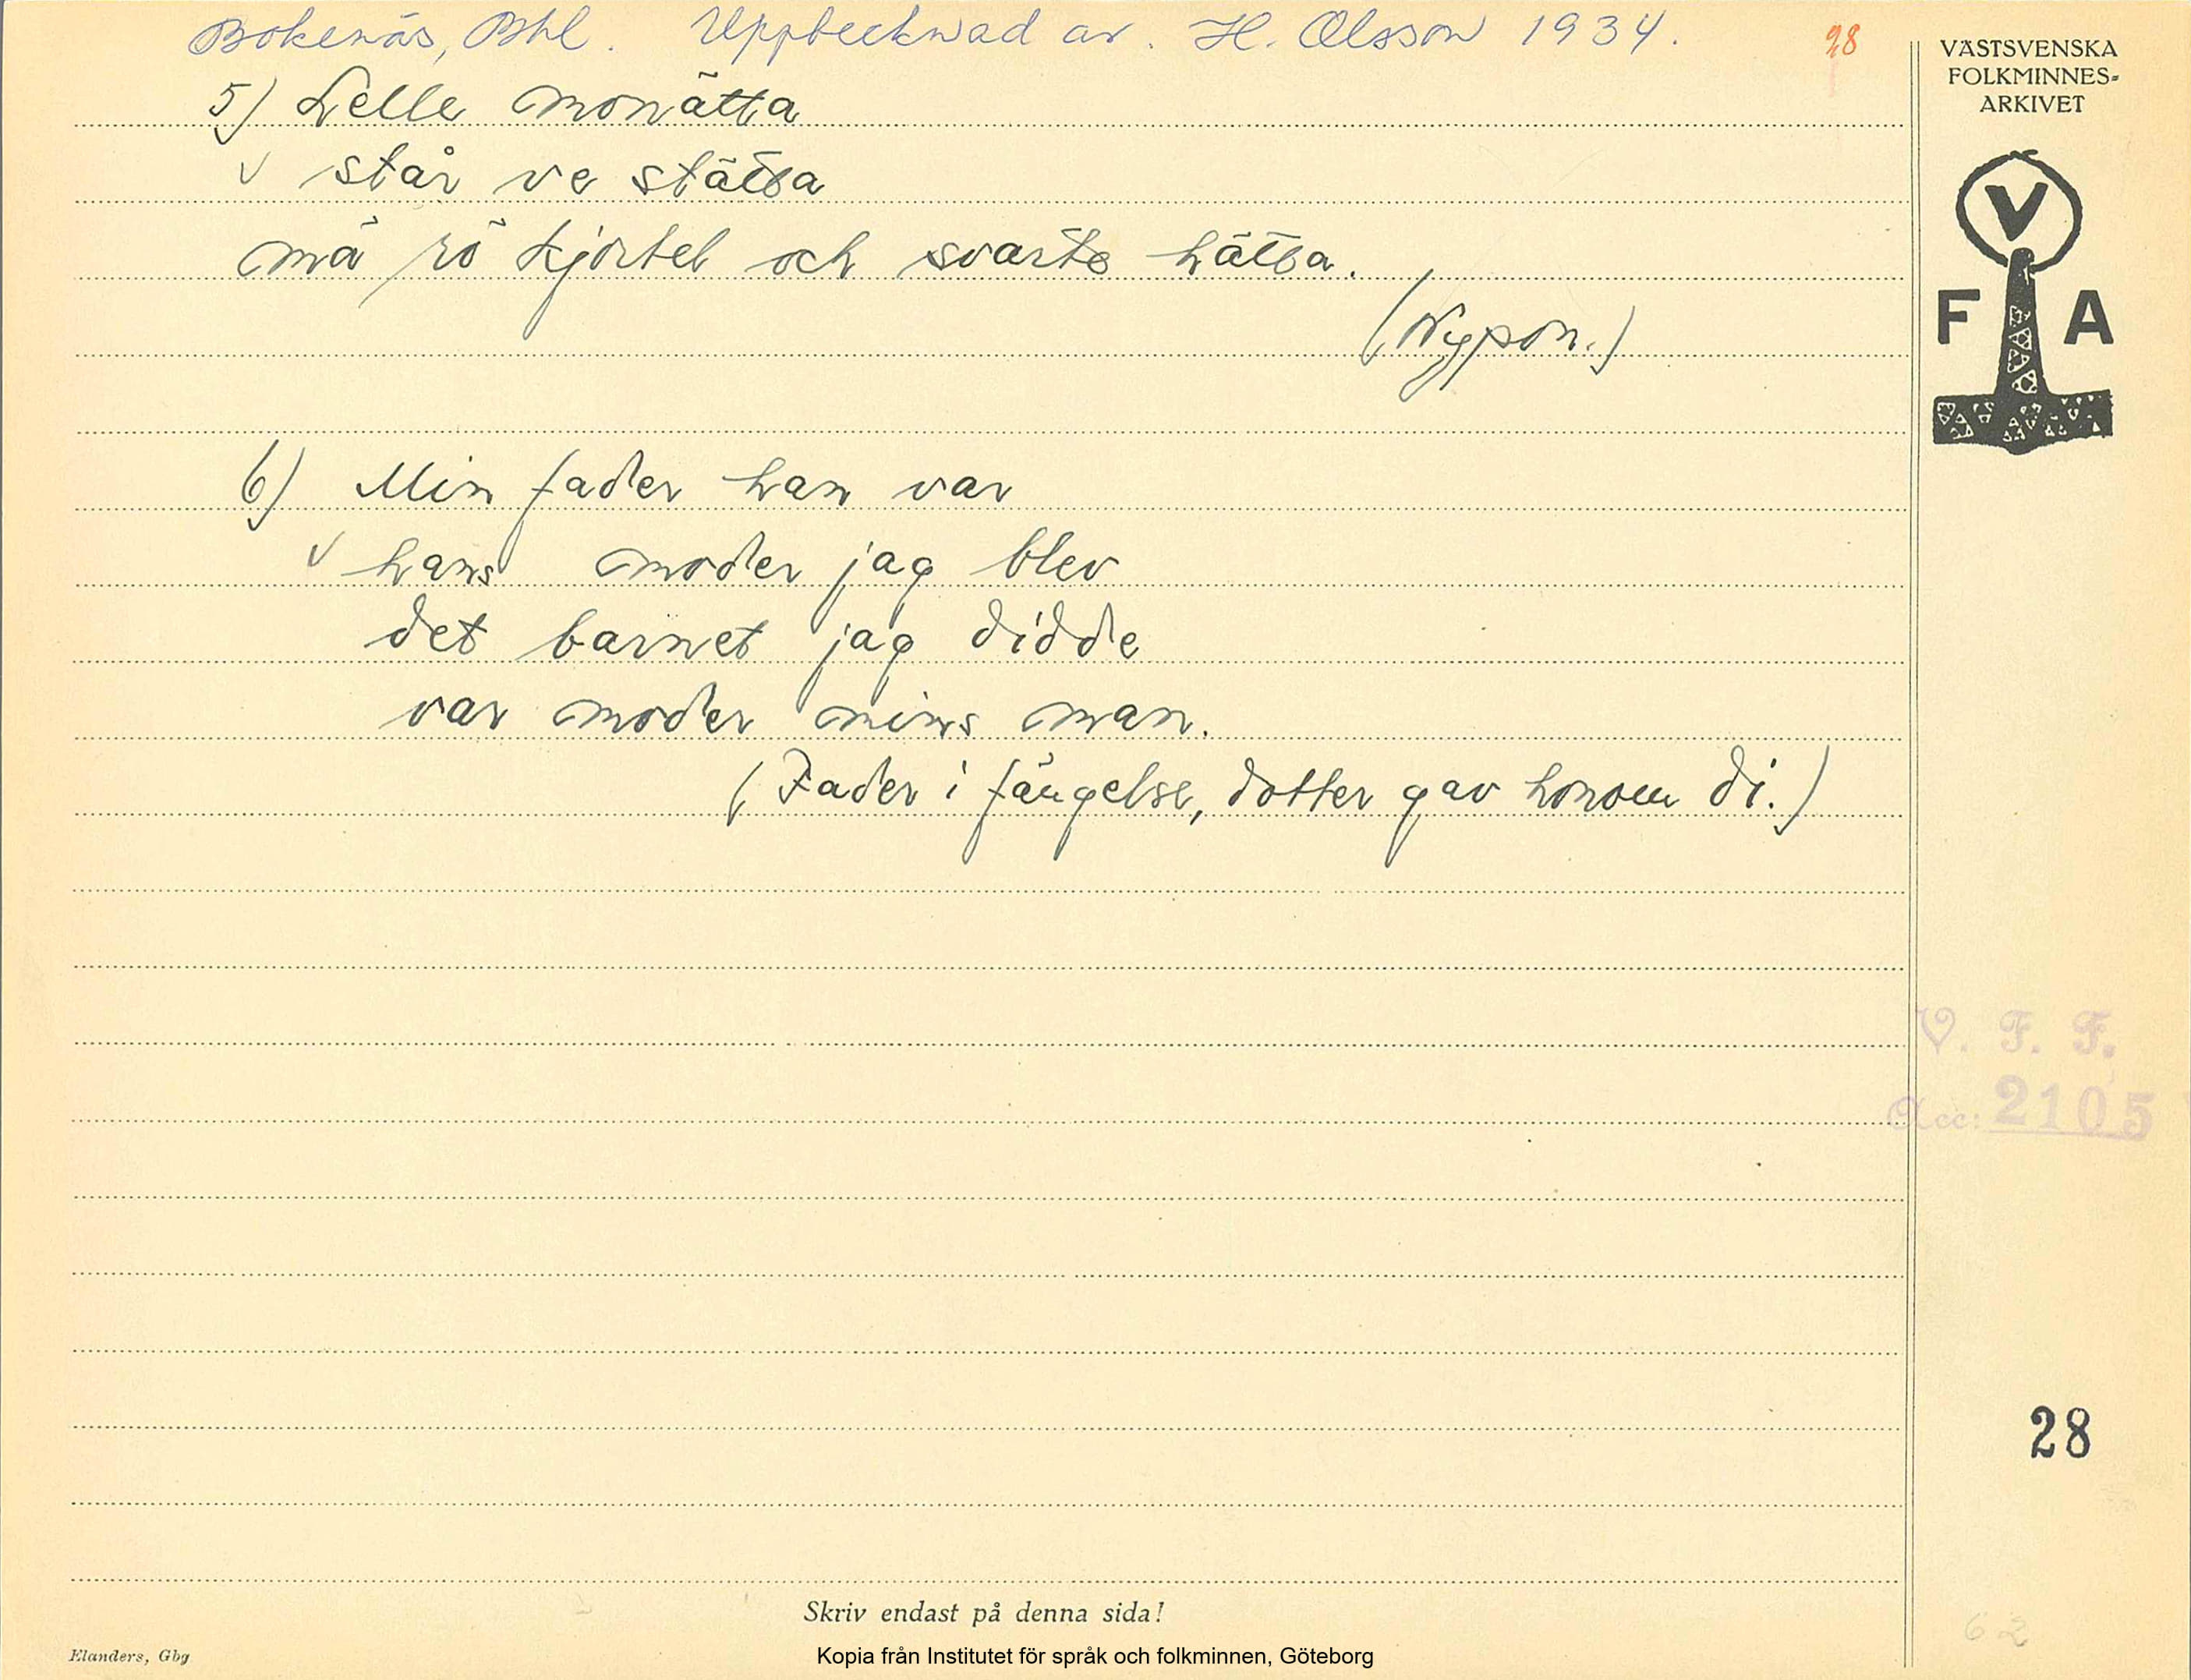 Bokenäs, Bhl. Upptecknad av. H. Olsson 1934.
28
VÄSTSVENSKA
FOLKMINNES-
ARKIVET
5) Lelle monätta
v står ve stätta
mä rö kjortel och svarte hätta.
(Nypon.)
V
F A
6) Min fader han var
v hans moder jag blev
det barnet jag didde
var moder mins man.
(Fader i fängelse, dotter gav honom di.)
V. F. F.
Acc: 2105
28
Skriv endast på denna sida!
62
Elanders, Gbg
Kopia från Institutet för språk och folkminnen, Göteborg